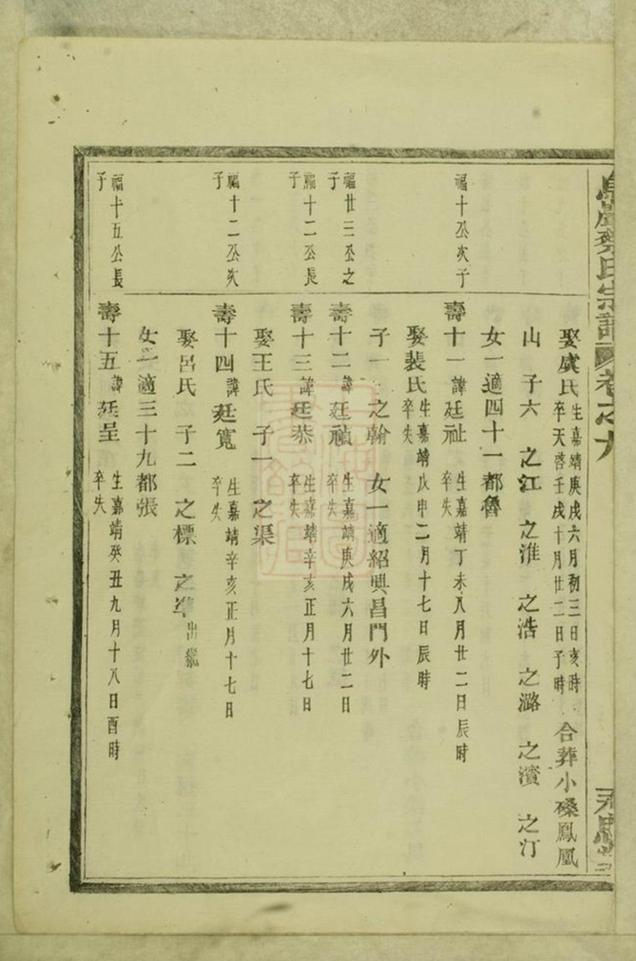 氏宗譜 卷之九
娶虞氏 生嘉靖庚戌六月初三日亥時 卒天啓壬戌十月廿二日子時 合葬小磉鳳凰
山 子六 之江 之淮 之浩 之潞 之濱 之汀
女一適四十一都魯
福十公次子
壽十一諱廷祉 生嘉靖丁未八月廿二日辰時 卒失
娶裴氏 生嘉靖戊申二月十七日辰時 卒失
子一 之翰 女一適紹興昌門外
福廿三公之子
壽十二諱廷禎 生嘉靖庚戌六月廿二日 卒失
福十二公長子
壽十三諱廷恭 生嘉靖辛亥正月十七日 卒失
娶王氏 子一 之渠
福十二公次子
壽十四諱廷寬 生嘉靖辛亥正月十七日 卒失
娶呂氏 子二 之標 之準 出繼
女一適三十九都張
福十五公長子
壽十五諱廷呈 生嘉靖癸丑九月十八日酉時 卒失